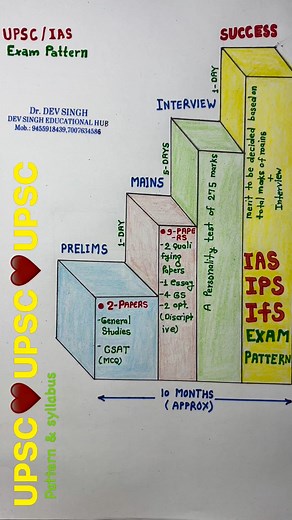 UPSC/IAS
Exam Pattern
Dr. DEV SINGH
DEV SINGH EDUCATIONAL HUB
Mob.: 9455918439,7007634586
SUCCESS
1-DAY
INTERVIEW
5-DAYS
MAINS
1-DAY
PRELIMS
• 2-PAPERS
-General
Studies
- CSAT
(MCQ)
• 9-PAPE
-RS
-2 Quali
fying
Papers
-1 Essay
-4 GS
-2 opt.
(Discript
ive)
A Personality test of 275 marks
merit to be decided based on
total maks of mains
+
Interview
IAS
IPS
IfS
EXAM
PATTERN
10 MONTHS
(APPROX)
UPSC❤️UPSC❤️UPSC
Pattern & syllabus